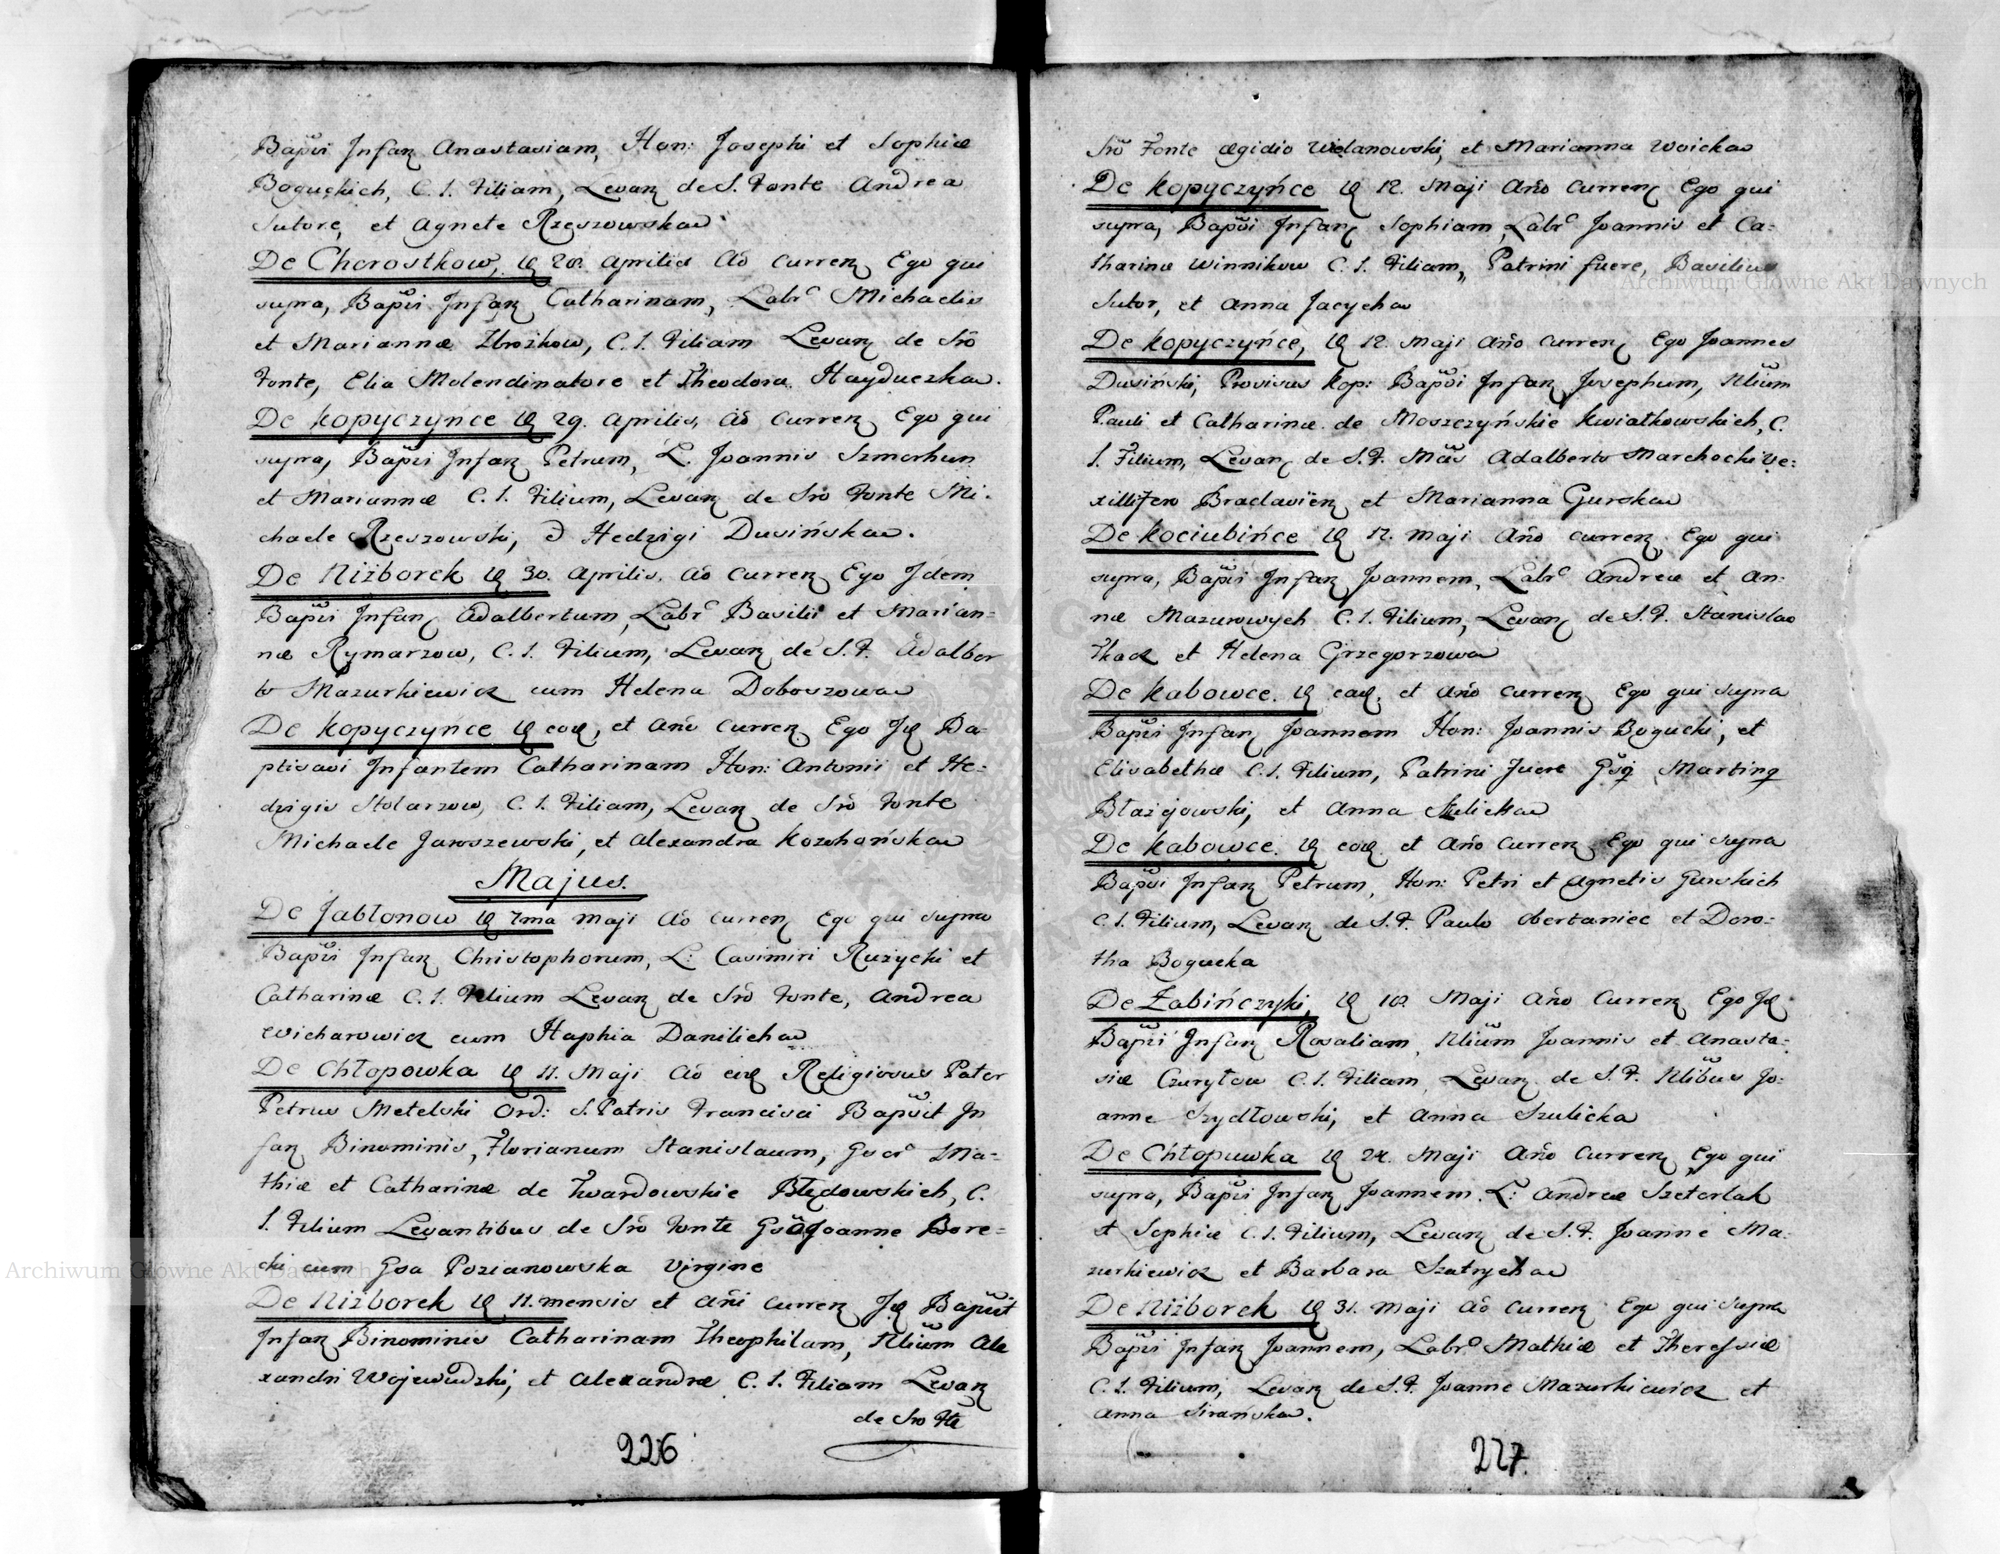 Bapvi Infan Anastasiam, Hon: Josephi et Sophiæ
Boguckich, C. L. Filiam, Levan de S. Fonte Andrea
Sutore, et Agnete Rzeszowska
De Chorostkow, 28. Aprilis Ao curren Ego qui
supra, Bapvi Infan Catharinam, Labr Michaelis
et Mariannæ Zbrozkow, C. L. Filiam Levan de Sro
Fonte, Elia Molendinatore et Theodora Hayduczka.
De Kopyczynce 29. Aprilis, Ao curren Ego qui
supra, Bapvi Infan Petrum, L. Joannis Szmorhun
et Mariannæ C. L. Filium, Levan de Sro Fonte Mi-
chaele Rzeszowski, Hedzigi Dusińska.
De Niżborek 30. Aprilis, Ao curren Ego Idem
Bapvi Infan Adalbertum, Labr Basilii et Marian-
næ Rymarzow, C. L. Filium, Levan de S. F. Adalber
to Mazurkiewicz cum Helena Doboszowa
De Kopyczynce, et Año curren Ego Ba-
ptisavi Infantem Catharinam Hon: Antonii et He-
dzigis Stolarzow, C. L. Filiam, Levan de Sro Fonte
Michaele Jaroszewski, et Alexandra Kozohańska
Majus.
De Jabłonow 7ma Maji Ao curren Ego qui supra
Bapvi Infan Christophorum, L: Casimiri Ruzycki et
Catharinæ C. L. Filium Levan de Sro Fonte, Andrea
Wicharowicz cum Haphia Danilicha
De Chłopowka 11. Maji Ao Religiosus Pater
Petrus Metelski Ord: S. Patris Francisci Bapvit In
fan Binominis, Florianum Stanislaum, Gsor Ma-
thiæ et Catharinæ de Twardowskie Błędowskich, C.
L. Filium Levantibus de Sro Fonte Joanne Bore-
cki cum Gsa Pozianowska Virgine
De Niżborek 11. mensis et Añi curren Bapvit
Infan Binominis Catharinam Theophilam, Nlium Ale
xandri Wojewudzki, et Alexandræ C. L. Filiam Levan
de Sro Fte
226
Sro Fonte Ægidio Wielanowski, et Marianna Woicka
De Kopyczyńce 12. Maji Año curren Ego qui
supra, Bapvi Infan Sophiam, Labr Joannis et Ca-
tharinæ Winnikow C. L. Filiam, Patrini fuere, Basilius
Sutor, et Anna Jacycha
De Kopyczyńce, 12. Maji Año curren Ego Joannes
Dusiński, Provisus Kop: Bapvi Infan Josephum, Nlium
Pauli et Catharinæ de Moszczyńskie Kwiatkowskich, C.
L. Filium, Levan de S. F. Adalberto Marchocki Ve-
xillifero Braclavien et Marianna Gurska
De Kociubińce 17. Maji Año curren Ego qui
supra, Bapvi Infan Joannem, Labr Andreæ et An-
næ Mazurowych C. L. Filium, Levan de S. F. Stanislao
Tkacz et Helena Grzegorzowa
De Kabowce. et Año curren Ego qui supra
Bapvi Infan Joannem Hon: Joannis Bogucki, et
Elisabethæ C. L. Filium, Patrini fuere Martinq
Błażejowski, et Anna Szulicka
De Kabowce. et Año curren Ego qui supra
Bapvi Infan Petrum, Hon: Petri et Agnetis Gurskich
C. L. Filium, Levan de S. F. Paulo Obertaniec et Doro-
tha Bogucka
De Żabińczyki, 18. Maji Año curren Ego
Bapvi Infan Rosaliam, Nlium Joannis et Anasta-
siæ Czuryłow C. L. Filiam, Levan de S. F. Nlibus Jo-
anne Szydłowski, et Anna Szulicka
De Chłopuwka 24. Maji Año curren Ego qui
supra, Bapvi Infan Joannem, L: Andreæ Szetorlak
et Sophiæ C. L. Filium, Levan de S. F. Joanne Ma-
zurkiewicz et Barbara Szatrycha
De Niżborek 31. Maji Ao curren Ego qui supra
Bapvi Infan Joannem, Labr Mathiæ et Theressiæ
C. L. Filium, Levan de S. F. Joanne Mazurkiewicz et
Anna Sirańska.
227
Archiwum Główne Akt Dawnych
Archiwum Główne Akt Dawnych